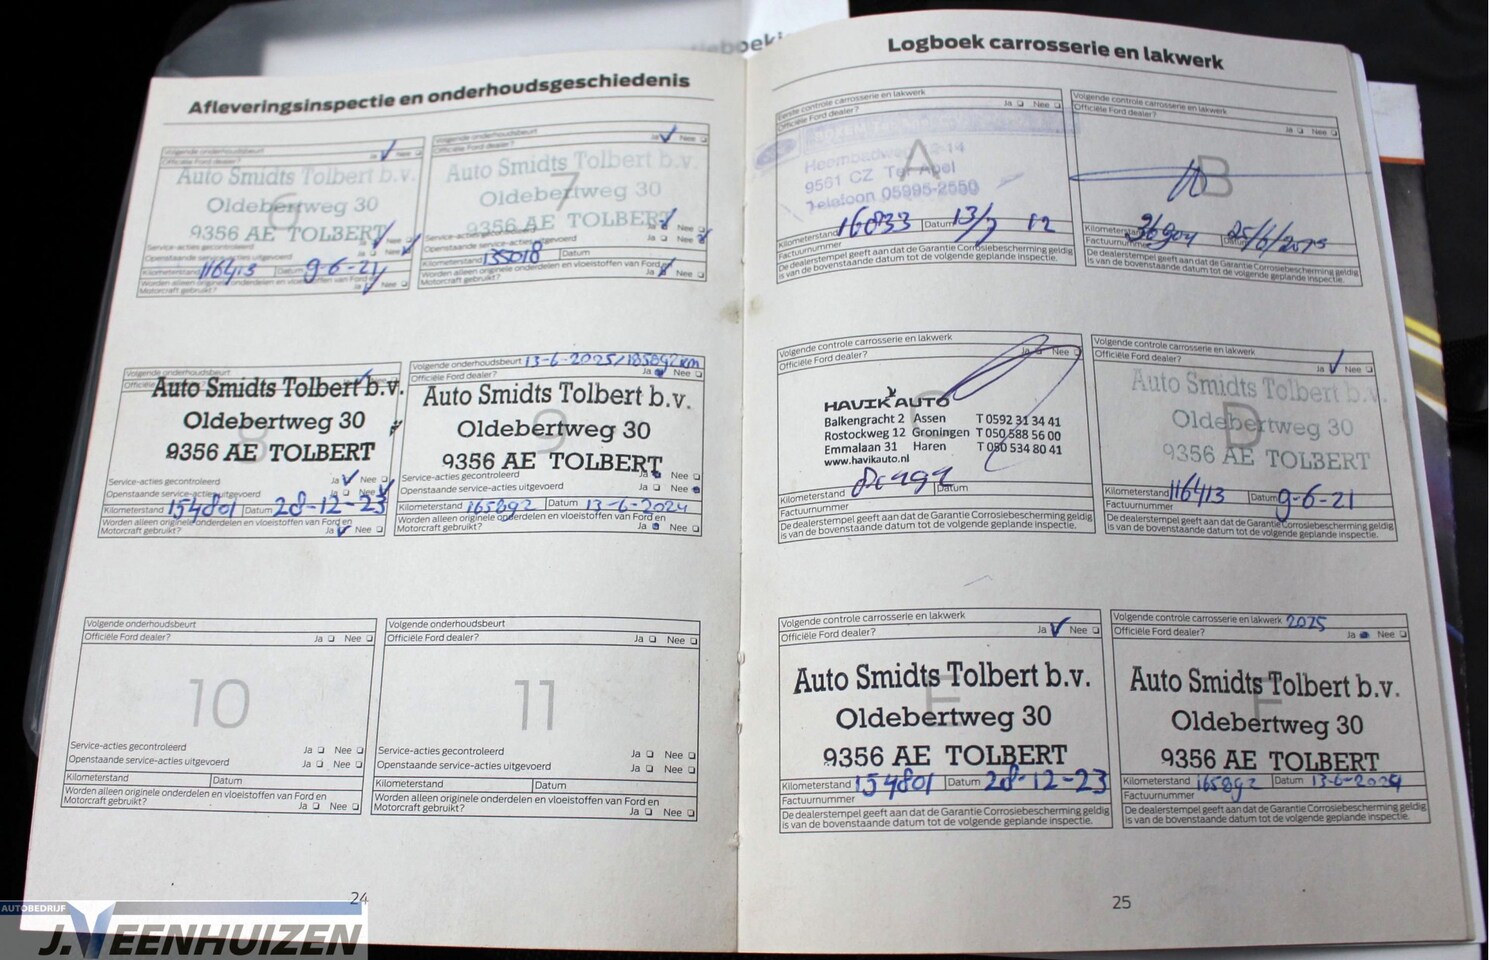 Afleveringsinspectie en onderhoudsgeschiedenis
Volgende onderhoudsbeurt
Officiële Ford dealer?
Ja Nee
Auto Smidts Tolbert b.v.
Oldebertweg 30
9356 AE TOLBERT
6
Service-acties gecontroleerd
Openstaande service-acties uitgevoerd
Kilometerstand 116413 Datum 9-6-21
Worden alleen originele onderdelen en vloeistoffen van Ford en
Motorcraft gebruikt? Ja Nee
Volgende onderhoudsbeurt
Officiële Ford dealer? Ja Nee
Auto Smidts Tolbert b.v.
Oldebertweg 30
9356 AE TOLBERT
7
Service-acties gecontroleerd
Openstaande service-acties uitgevoerd Ja Nee
Kilometerstand 135018 Datum
Worden alleen originele onderdelen en vloeistoffen van Ford en
Motorcraft gebruikt? Nee
Volgende onderhoudsbeurt
Auto Smidts Tolbert b.v.
Oldebertweg 30
9356 AE TOLBERT
8
Service-acties gecontroleerd Ja Nee
Openstaande service-acties uitgevoerd Ja Nee
Kilometerstand 154801 Datum 28-12-23
Worden alleen originele onderdelen en vloeistoffen van Ford en
Motorcraft gebruikt? Ja Nee
Volgende onderhoudsbeurt 13-6-2025/185892 km
Officiële Ford dealer? Ja Nee
Auto Smidts Tolbert b.v.
Oldebertweg 30
9356 AE TOLBERT
9
Service-acties gecontroleerd Ja Nee
Openstaande service-acties uitgevoerd Ja Nee
Kilometerstand 165892 Datum 13-6-2024
Worden alleen originele onderdelen en vloeistoffen van Ford en
Motorcraft gebruikt? Ja Nee
Volgende onderhoudsbeurt
Officiële Ford dealer? Ja Nee
10
Service-acties gecontroleerd Ja Nee
Openstaande service-acties uitgevoerd Ja Nee
Kilometerstand Datum
Worden alleen originele onderdelen en vloeistoffen van Ford en
Motorcraft gebruikt? Ja Nee
Volgende onderhoudsbeurt
Officiële Ford dealer? Ja Nee
11
Service-acties gecontroleerd Ja Nee
Openstaande service-acties uitgevoerd Ja Nee
Kilometerstand Datum
Worden alleen originele onderdelen en vloeistoffen van Ford en
Motorcraft gebruikt? Ja Nee
24
Logboek carrosserie en lakwerk
Eerste controle carrosserie en lakwerk
Officiële Ford dealer? Ja Nee
A
9561 CZ Ter Apel
Telefoon 05995-2550
Kilometerstand 16833 Datum 13/7 12
Factuurnummer
De dealerstempel geeft aan dat de Garantie Corrosiebescherming geldig
is van de bovenstaande datum tot de volgende geplande inspectie.
Volgende controle carrosserie en lakwerk
Officiële Ford dealer? Ja Nee
B
Kilometerstand 36904 Datum 25/6/2015
Factuurnummer
De dealerstempel geeft aan dat de Garantie Corrosiebescherming geldig
is van de bovenstaande datum tot de volgende geplande inspectie.
Volgende controle carrosserie en lakwerk
Officiële Ford dealer? Ja Nee
HAVIK AUTO
Balkengracht 2 Assen T 0592 31 34 41
Rostockweg 12 Groningen T 050 588 56 00
Emmalaan 31 Haren T 050 534 80 41
www.havikauto.nl
Kilometerstand Datum
Factuurnummer
De dealerstempel geeft aan dat de Garantie Corrosiebescherming geldig
is van de bovenstaande datum tot de volgende geplande inspectie.
Volgende controle carrosserie en lakwerk
Officiële Ford dealer? Ja Nee
Auto Smidts Tolbert b.v.
Oldebertweg 30
9356 AE TOLBERT
D
Kilometerstand 116413 Datum 9-6-21
Factuurnummer
De dealerstempel geeft aan dat de Garantie Corrosiebescherming geldig
is van de bovenstaande datum tot de volgende geplande inspectie.
Volgende controle carrosserie en lakwerk
Officiële Ford dealer? Ja Nee
Auto Smidts Tolbert b.v.
Oldebertweg 30
9356 AE TOLBERT
E
Kilometerstand 154801 Datum 28-12-23
Factuurnummer
De dealerstempel geeft aan dat de Garantie Corrosiebescherming geldig
is van de bovenstaande datum tot de volgende geplande inspectie.
Volgende controle carrosserie en lakwerk 2025
Officiële Ford dealer? Ja Nee
Auto Smidts Tolbert b.v.
Oldebertweg 30
9356 AE TOLBERT
F
Kilometerstand 165892 Datum 13-6-2024
Factuurnummer
De dealerstempel geeft aan dat de Garantie Corrosiebescherming geldig
is van de bovenstaande datum tot de volgende geplande inspectie.
25
AUTOBEDRIJF
J.VEENHUIZEN